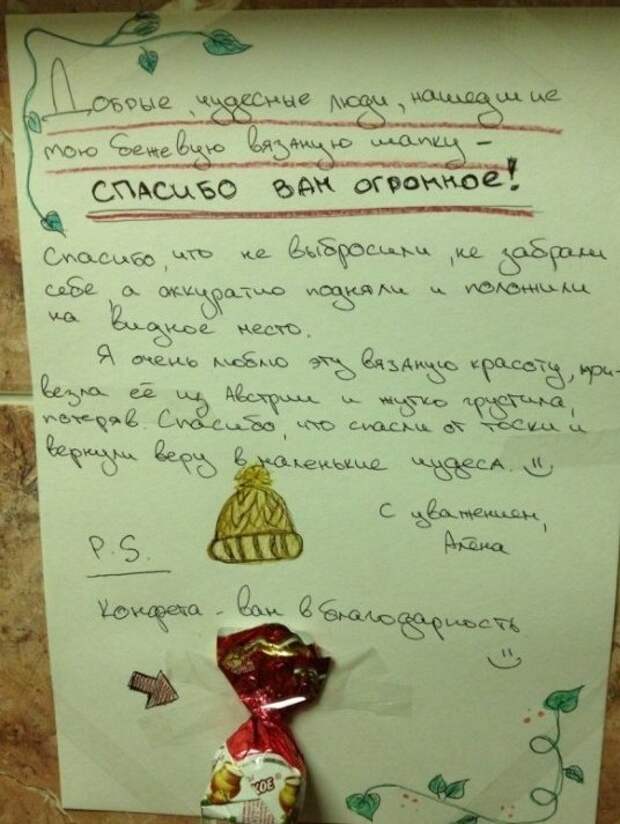 Добрые, чудесные люди, нашедшие
мою бежевую вязаную шапку –
СПАСИБО ВАМ ОГРОМНОЕ!
Спасибо, что не выбросили, не забрали
себе, а аккуратно подняли и положили
на видное место.
Я очень люблю эту вязаную красоту, при-
везла её из Австрии и жутко грустила,
потеряв. Спасибо, что спасли от тоски и
вернули веру в маленькие чудеса.
С уважением,
Алёна
P.S.
Конфета - вам в благодарность
КОЕ